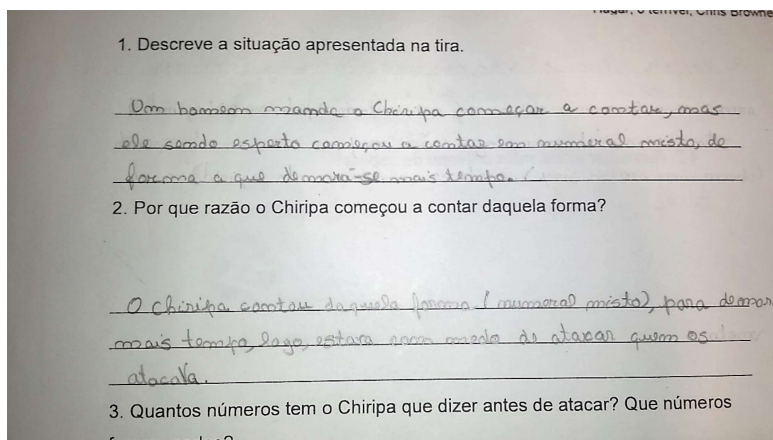 Hagar, o terrível, Chris Browne
1. Descreve a situação apresentada na tira.
Um homem manda o Chiripa começar a contar, mas
ele sendo esperto começou a contar em numeral misto, de
forma a que demorá-se mais tempo.
2. Por que razão o Chiripa começou a contar daquela forma?
O Chiripa contou daquela forma (numeral misto), para demorar
mais tempo, logo, estava com medo de atacar quem os
atacava.
3. Quantos números tem o Chiripa que dizer antes de atacar? Que números